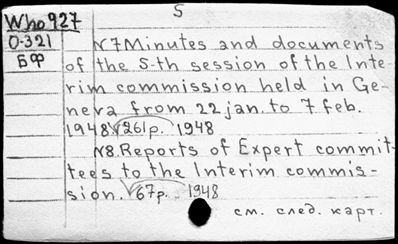 5
Who 927
O-321
БФ
N7 Minutes and documents
of the 5-th session of the Inte-
rim commission held in Ge-
neva from 22 jan. to 7 feb.
1948 261p. 1948
N8. Reports of Expert commit-
tees to the Interim commis-
sion. 67p. 1948
см. след. карт.